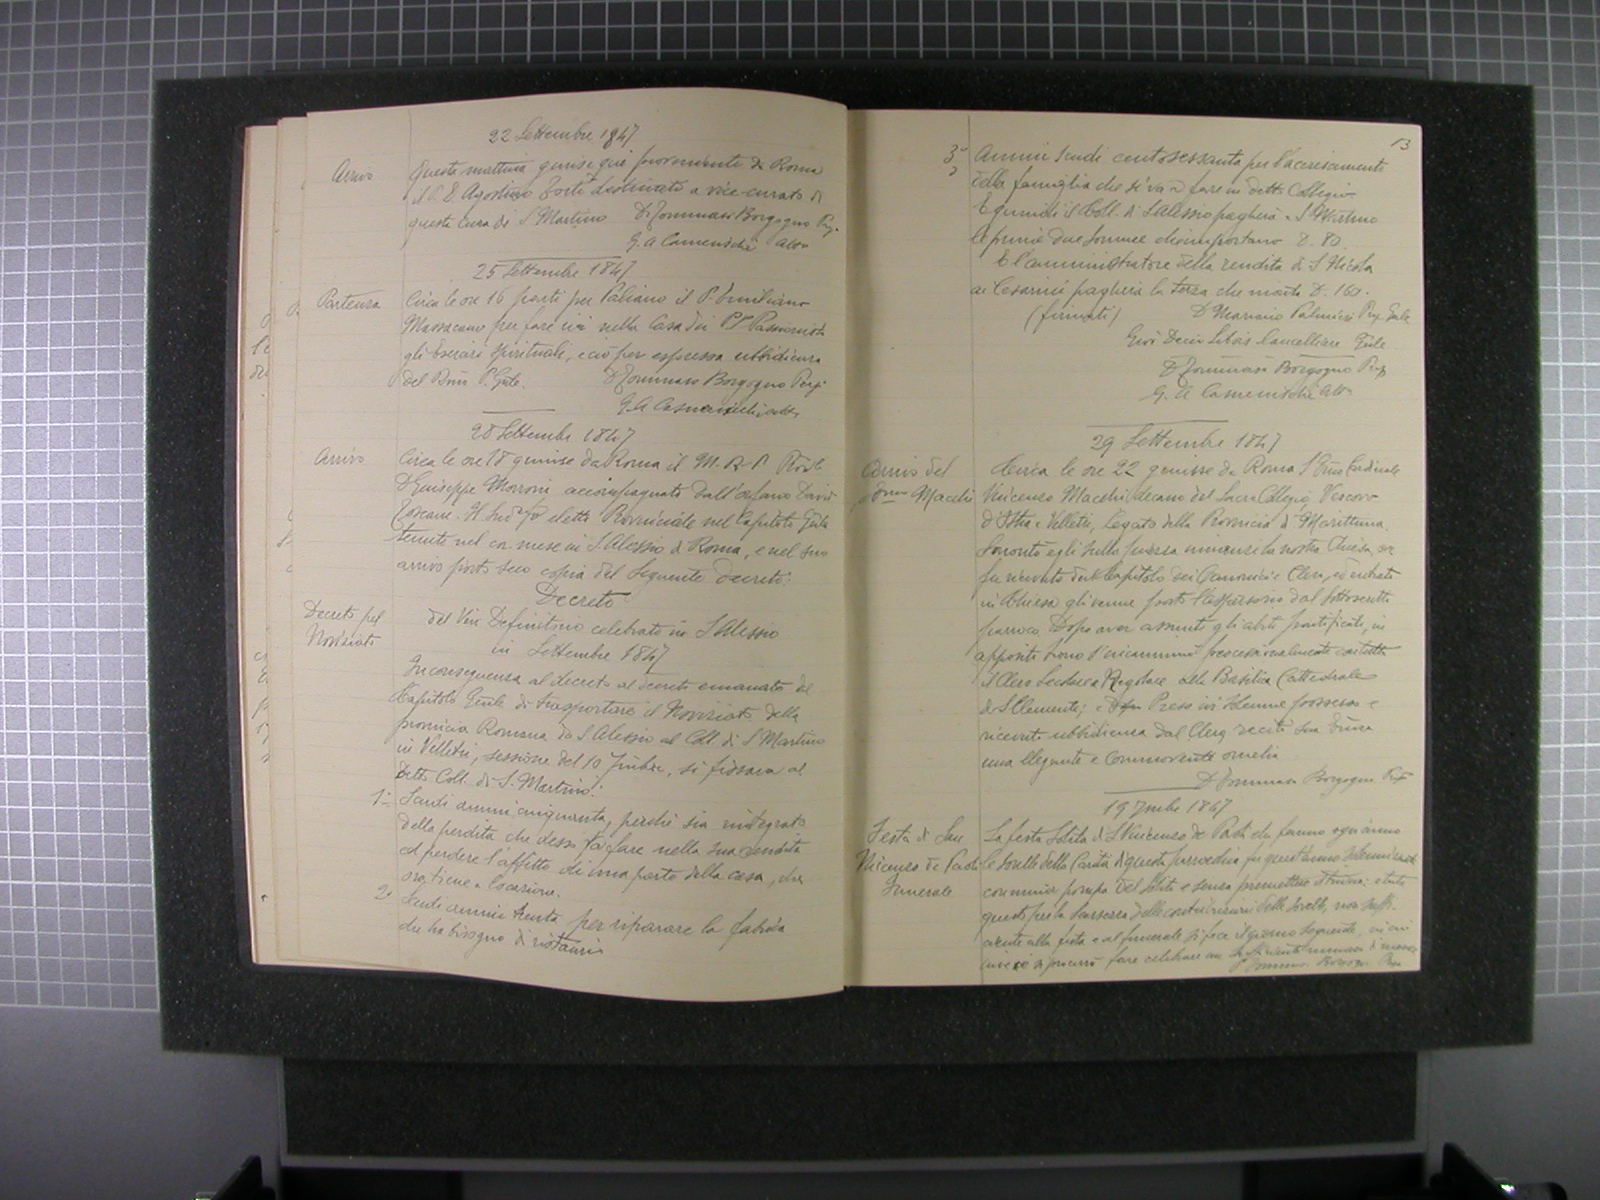 22 Settembre 1847
Arrivo
Questa mattina giunse qui proveniente da Roma
il P. D. Agostino Forti destinato a vice-curato di
questa Cura di S. Martino D. Tommaso Borgogno Prep.
G. A. Camenischi Atto
25 Settembre 1847
Partenza
Circa le ore 16 partì per Paliano il P. Emiliano
Massacano per fare ivi nella Casa dei PP. Passionisti
gli Esercizi Spirituali, e ciò per espressa ubbidienza
del Rmo P. Gnle. D. Tommaso Borgogno Prep.
G. A. Camenischi atto
28 Settembre 1847
Arrivo
Circa le ore 18 giunse da Roma il M. R. P. Prov.le
D. Giuseppe Morroni accompagnato dall'orfano David
Toscani. Il sud.to fu eletto Provinciale nel Capitolo Gnle
tenuto nel cor. mese in S. Alessio di Roma, e nel suo
arrivo portò seco copia del seguente decreto:
Decreto
Decreto pel
Noviziato
del Ven. Definitorio celebrato in S. Alessio
in Settembre 1847
In conseguenza al decreto al decreto emanato dal
Capitolo Gnle di trasportare il Noviziato della
provincia Romana da S. Alessio al Coll. di S. Martino
in Velletri, sessione del 10 7mbre, si fissava al
detto Coll. di S. Martino:
1° Scudi annui cinquanta, perchè sia reintegrato
della perdita che dessi fa fare nella sua rendita
col perdere l'affitto di una parte della casa, che
ora tiene a locazione.
2° Scudi annui trenta per riparare la fabrica
che ha bisogno di ristauri
13
3° Annui Scudi centosessanta per l'accrescimento
della famiglia che si va a fare in detto Collegio
E quindi il Coll. di S. Alessio pagherà a S. Martino
le prime due somme che importano D. 80.
E l'amministratore della rendita di S. Nicola
ai Cesarini pagherà la terza che monta D. 160.
(firmati) D. Marcario Palmieri Prep. Gnle
Giov. Decio Libois Cancelliere Gnle
D. Tommaso Borgogno Prep
G. A. Camenischi Atto
29 Settembre 1847
Arrivo del
Emo Macchi
Circa le ore 22 giunse da Roma l'Emo Cardinale
Vincenzo Macchi Decano del Sacro Collegio Vescovo
d'Ostia e Velletri, Legato della Provincia di Marittima.
Smontò egli sulla piazza innanzi la nostra Chiesa, ove
fu ricevuto dal Capitolo dei Canonici e Clero, ed entrato
in Chiesa gli venne porto l'aspersorio dal sottoscritto
parroco. Dopo aver assunti gli abiti pontificali, in
apposito trono s'incamminò processionalmente con tutto
il Clero Secolare e Regolare alla Basilica Cattedrale
di S. Clemente; e Preso ivi solenne possesso e
ricevuta ubbidienza dal Clero recitò Sua Emza
una elegante e commovente omelia
D. Tommaso Borgogno Prep
19 7mbe 1847
Festa di San
Vincenzo de Paoli
Funerale
La festa solita di S. Vincenzo de Paoli che fanno ogni anno
le sorelle della Carità di questa parrocchia, fu quest'anno solennizzata
con minor pompa del solito e senza premettere il triduo: e tutto
questo per la scarsezza delle contribuzioni delle sorelle, non suffi-
ciente alla festa e al funerale si fece il giorno seguente, in cui
si procurò fare celebrare un sufficiente numero di messe
D. Tommaso Borgogno Prep